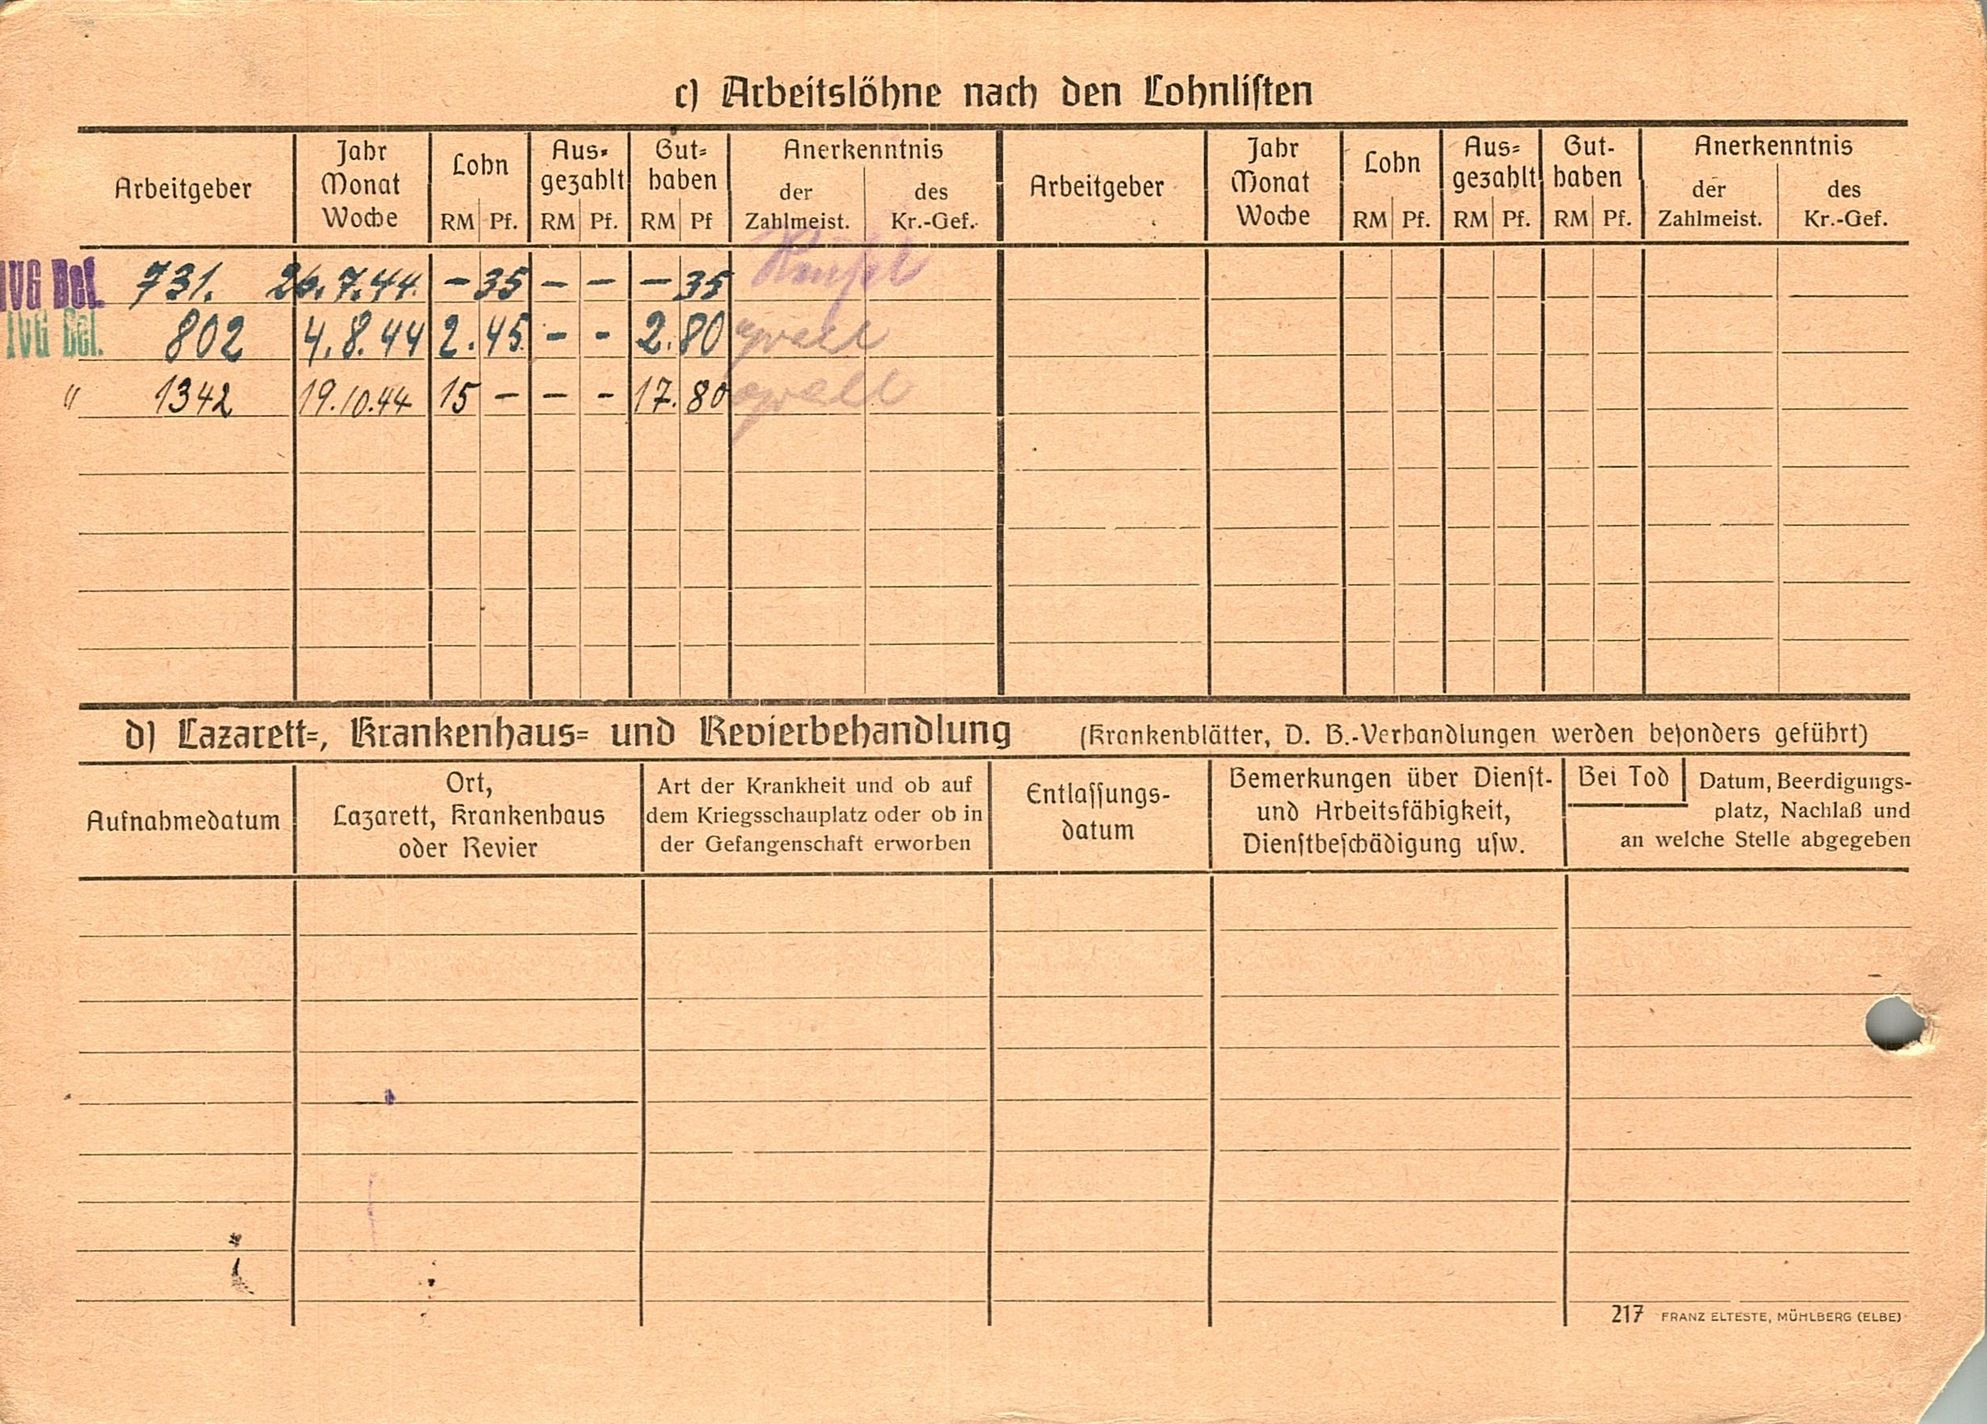 c) Arbeitslöhne nach den Lohnlisten
Arbeitgeber Jahr Monat Woche Lohn RM Pf. Aus-gezahlt RM Pf. Gut-haben RM Pf Anerkenntnis der Zahlmeist. des Kr.-Gef. Arbeitgeber Jahr Monat Woche Lohn RM Pf. Aus-gezahlt RM Pf. Gut-haben RM Pf. Anerkenntnis der Zahlmeist. des Kr.-Gef.
IVG Bel. 731. 26.7.44. - 35 - - - 35
IVG Bel. 802 4.8.44 2.45. - - 2.80
" 1342 19.10.44 15 - - - 17.80
d) Lazarett-, Krankenhaus- und Revierbehandlung (Krankenblätter, D. B.-Verhandlungen werden besonders geführt)
Aufnahmedatum Ort, Lazarett, Krankenhaus oder Revier Art der Krankheit und ob auf dem Kriegsschauplatz oder ob in der Gefangenschaft erworben Entlassungs-datum Bemerkungen über Dienst- und Arbeitsfähigkeit, Dienstbeschädigung usw. Bei Tod Datum, Beerdigungs-platz, Nachlaß und an welche Stelle abgegeben
217 FRANZ ELTESTE, MÜHLBERG (ELBE)